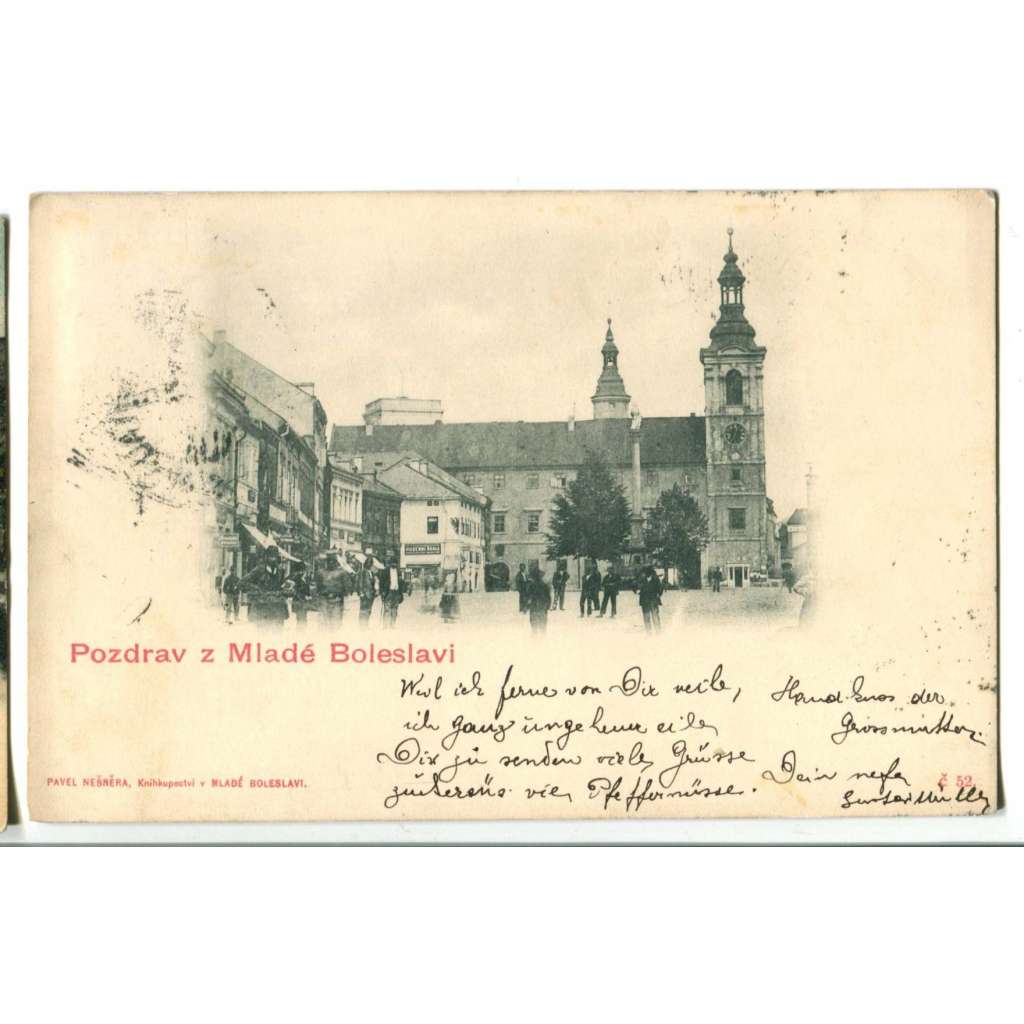 Pozdrav z Mladé Boleslavi
Weil ich ferne von Dir weile,
ich ganz ungeheuer eile,
Dir zu senden viele Grüsse
viel Pfeffernüsse.
Handkuss der
Grossmutter.
Dein neffe
PAVEL NEŠNĚRA, Knihkupectví v MLADÉ BOLESLAVI.
č 52.